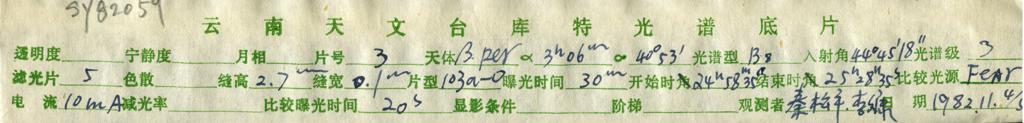 SY82059
云南天文台库特光谱底片
透明度 宁静度 月相 片号 3 天体 β per α 3ʰ06ᵐ ∞ 40°53′ 光谱型 B8 入射角 44°45′18″ 光谱级 3
滤光片 5 色散 缝高 2.7ᵐ 缝宽 0.1ᵐᵐ 片型 103a-O 曝光时间 30ᵐ 开始时角 24ʰ58ᵐ35ˢ 结束时角 25ʰ28ᵐ35ˢ 比较光源 FeAr
电流 10mA 减光率 比较曝光时间 20ˢ 显影条件 阶梯 观测者 秦松年. 日期 1982.11.4/5